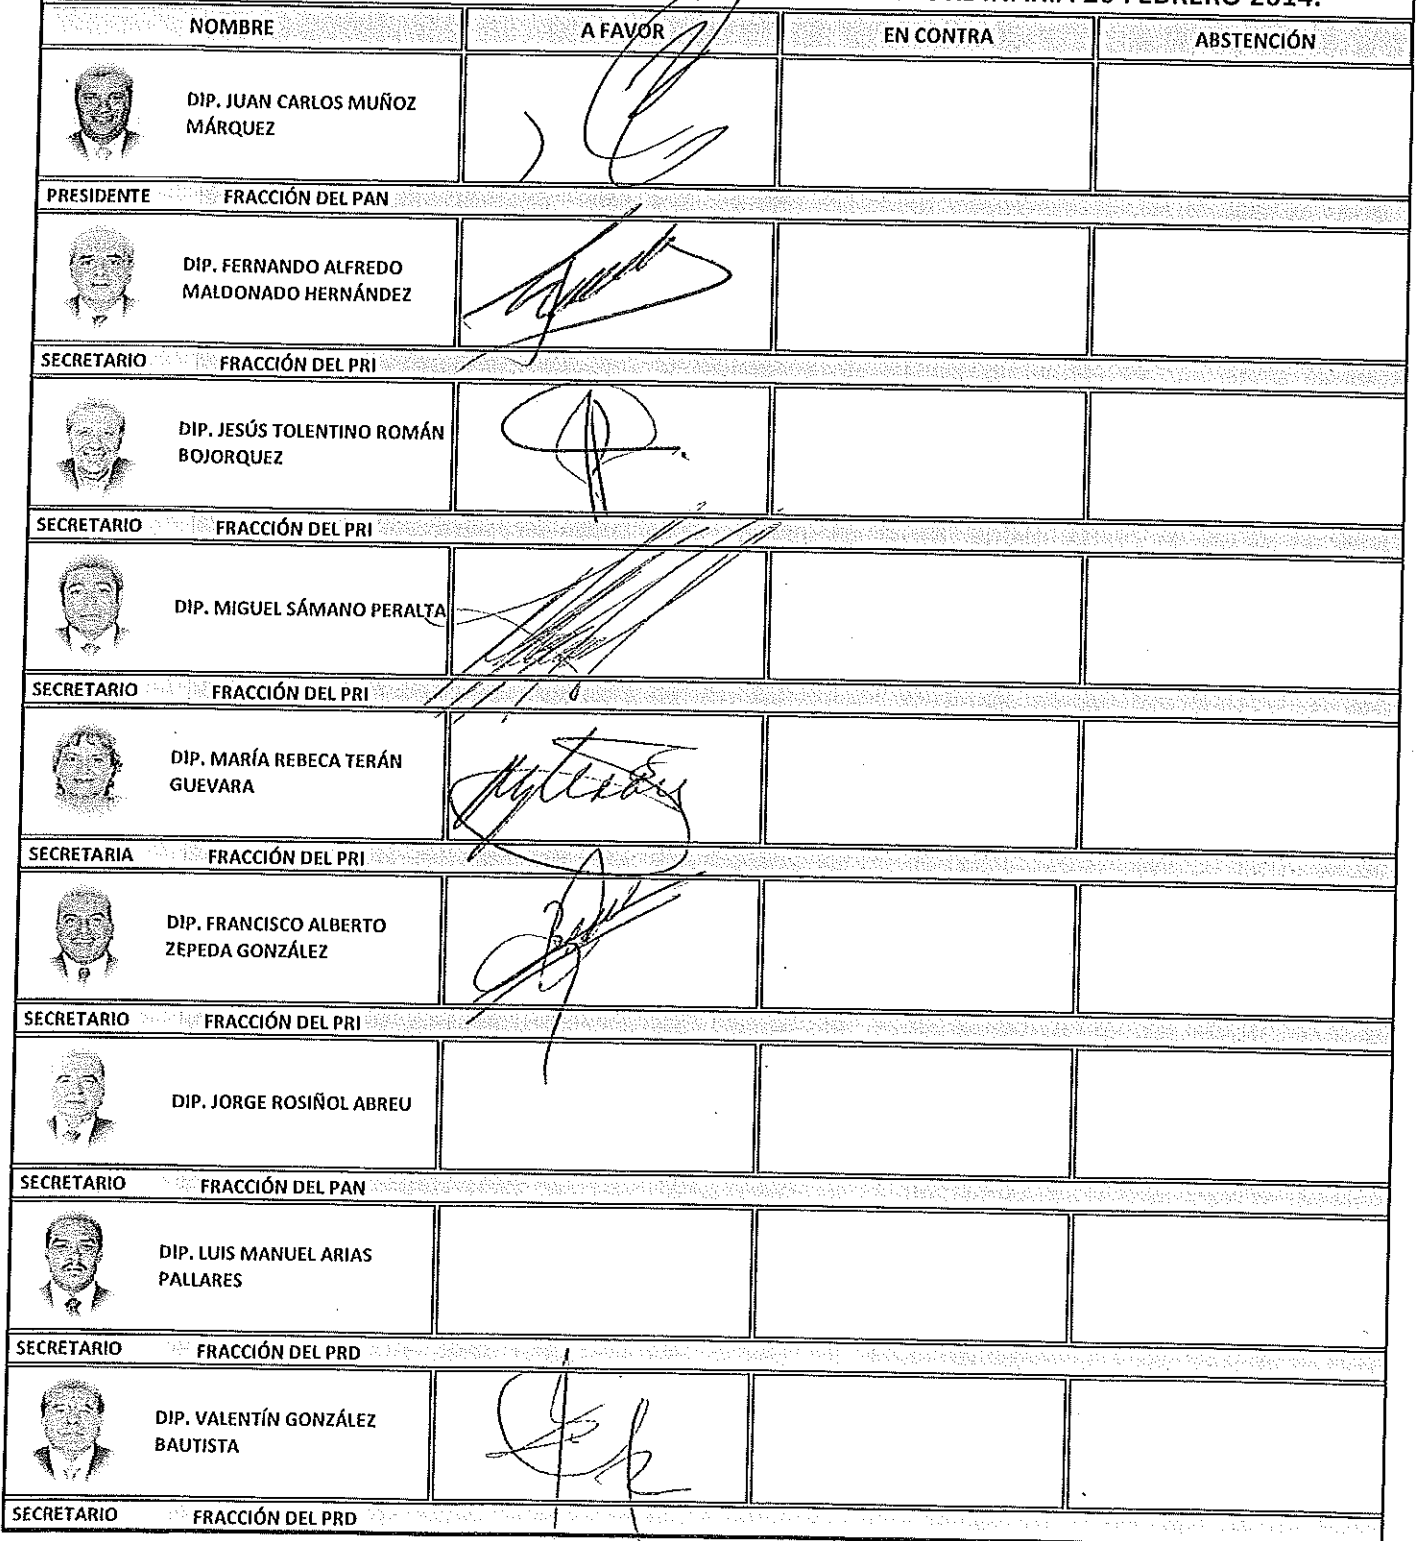 FEBRERO 2014.
NOMBRE A FAVOR EN CONTRA ABSTENCIÓN
DIP. JUAN CARLOS MUÑOZ
MÁRQUEZ
PRESIDENTE FRACCIÓN DEL PAN
DIP. FERNANDO ALFREDO
MALDONADO HERNÁNDEZ
SECRETARIO FRACCIÓN DEL PRI
DIP. JESÚS TOLENTINO ROMÁN
BOJORQUEZ
SECRETARIO FRACCIÓN DEL PRI
DIP. MIGUEL SÁMANO PERALTA
SECRETARIO FRACCIÓN DEL PRI
DIP. MARÍA REBECA TERÁN
GUEVARA
SECRETARIA FRACCIÓN DEL PRI
DIP. FRANCISCO ALBERTO
ZEPEDA GONZÁLEZ
SECRETARIO FRACCIÓN DEL PRI
DIP. JORGE ROSIÑOL ABREU
SECRETARIO FRACCIÓN DEL PAN
DIP. LUIS MANUEL ARIAS
PALLARES
SECRETARIO FRACCIÓN DEL PRD
DIP. VALENTÍN GONZÁLEZ
BAUTISTA
SECRETARIO FRACCIÓN DEL PRD